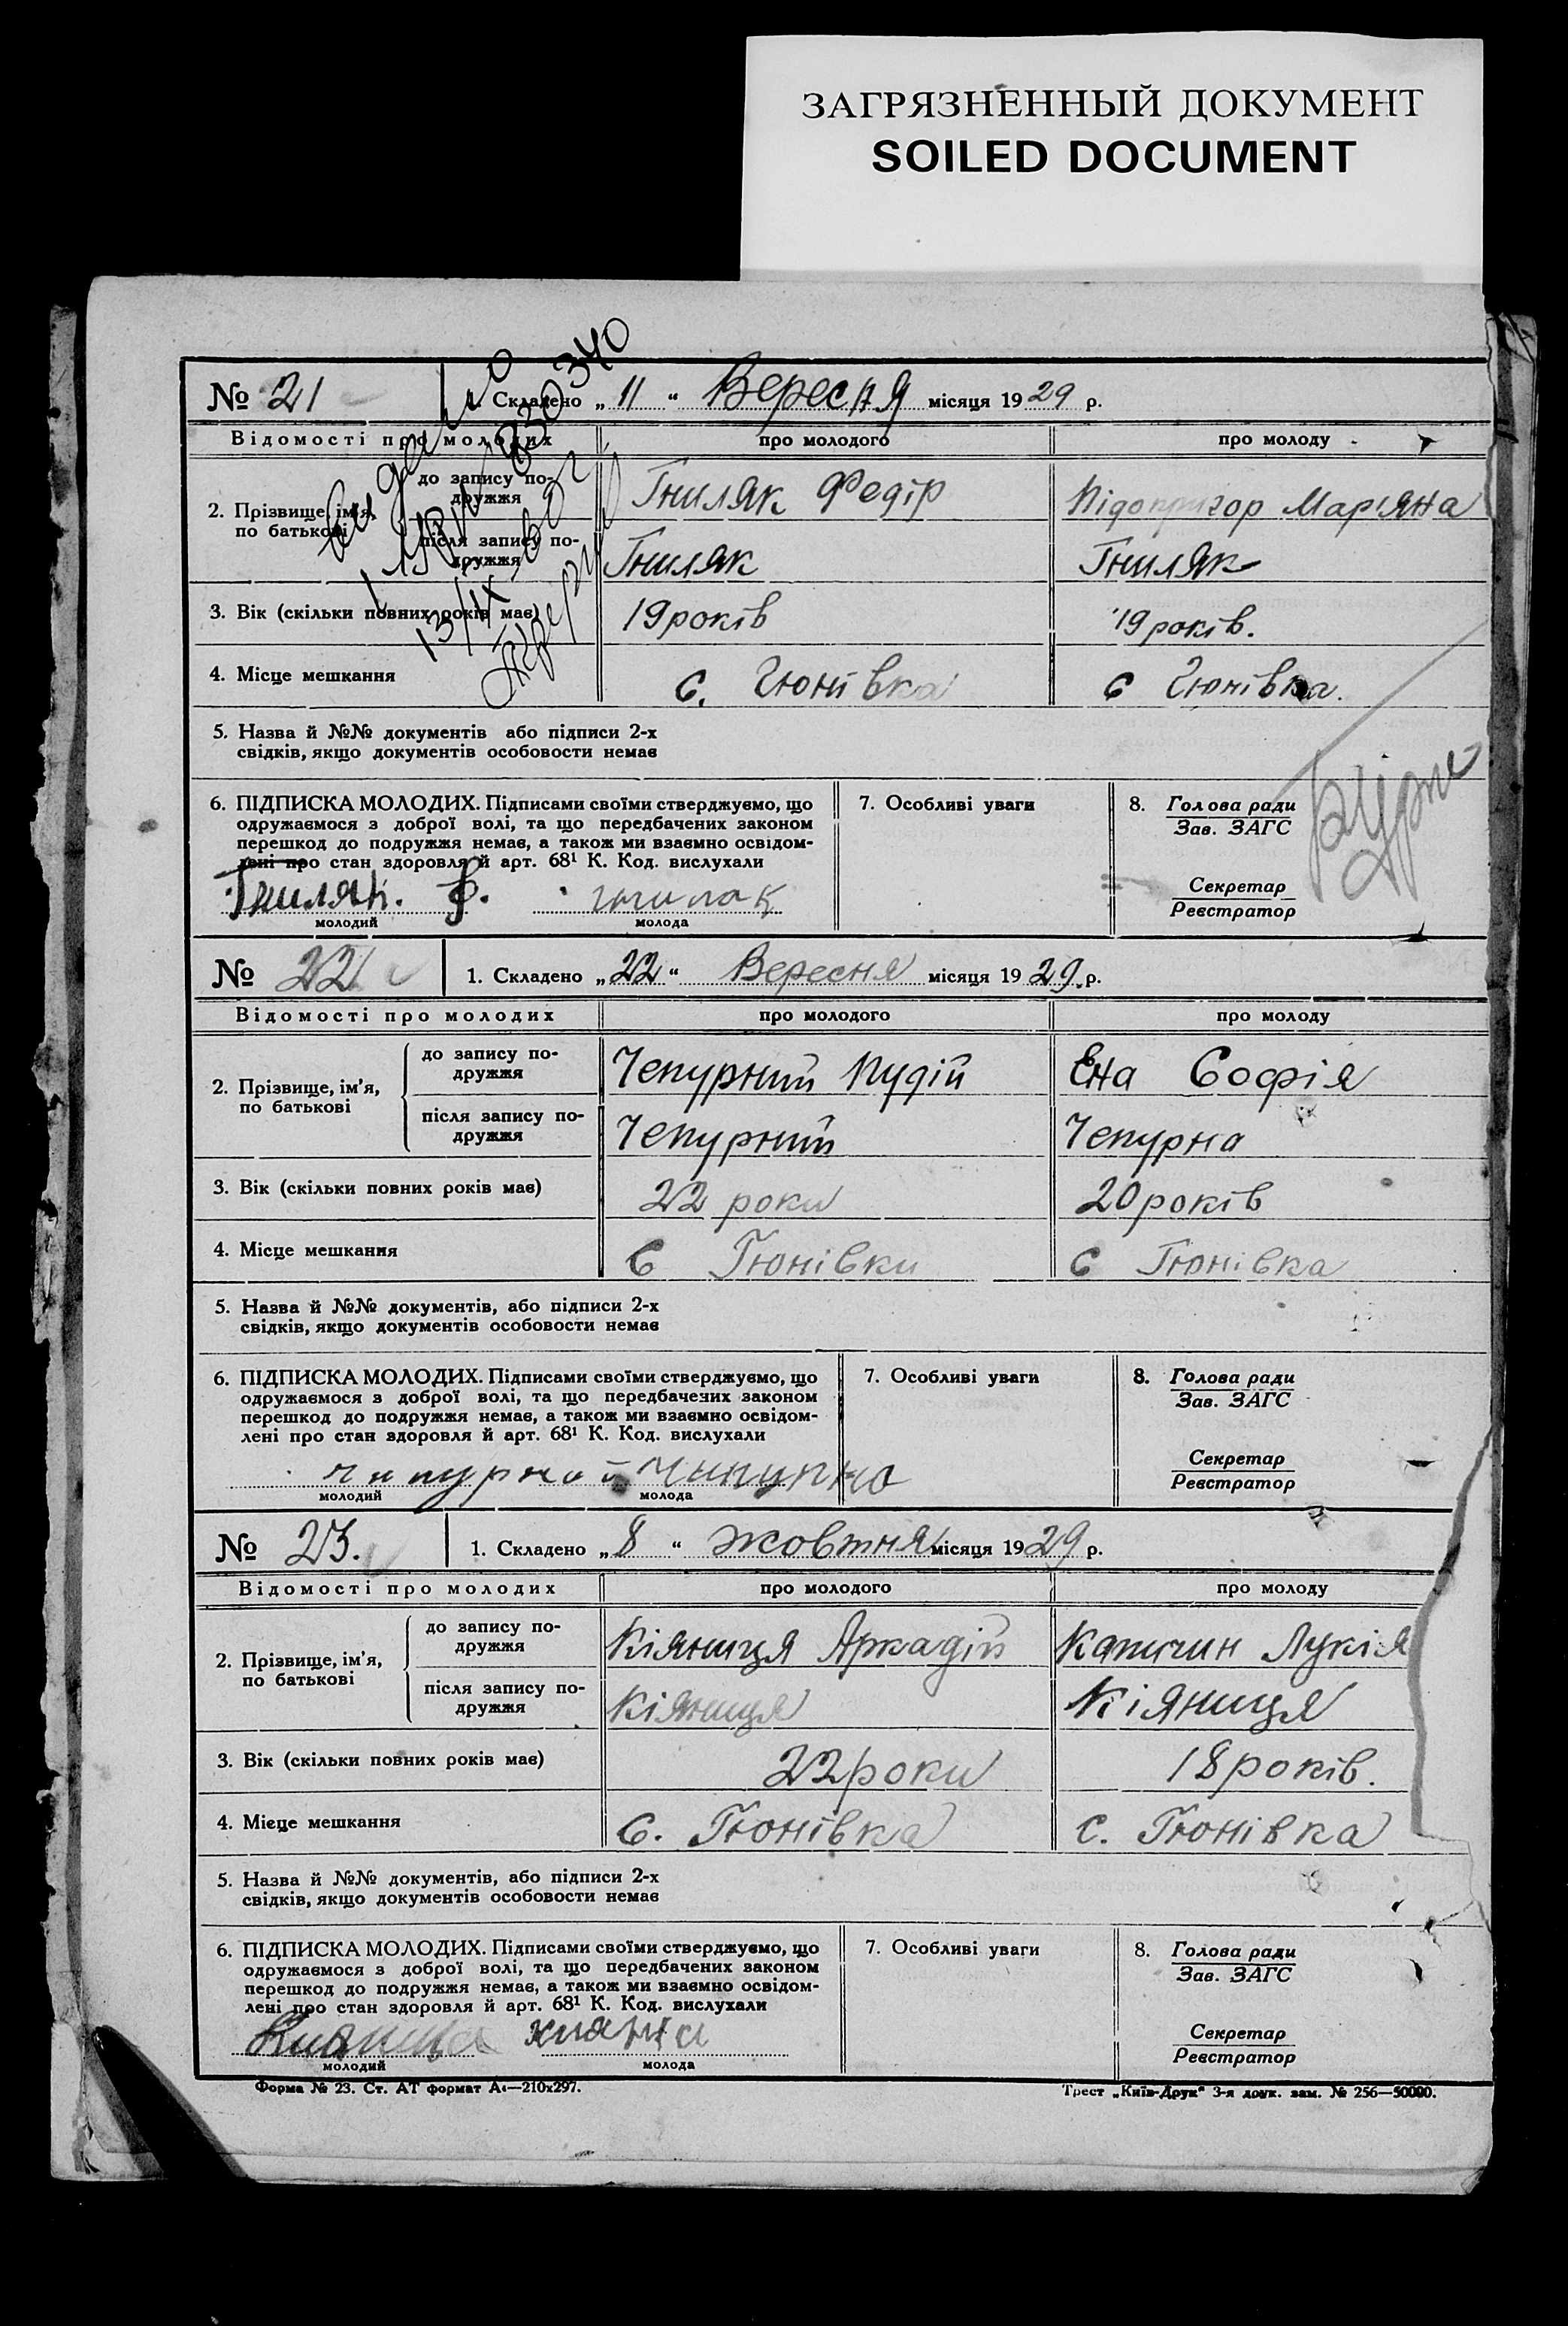 ЗАГРЯЗНЕННЫЙ ДОКУМЕНТ
SOILED DOCUMENT
№ 21 1. Складено „ 11 “ Вересня місяця 1929 р.
Відомості про молодих про молодого про молоду
2. Прізвище, ім'я, по батькові
до запису подружжя Гниляк Федір Підопригор Мар'яна
після запису подружжя Гниляк Гниляк
3. Вік (скільки повних років має) 19 років 19 років.
4. Місце мешкання с. Гюнівка с Гюнівка.
5. Назва й №№ документів або підписи 2-х
свідків, якщо документів особовости немає
6. ПІДПИСКА МОЛОДИХ. Підписами своїми стверджуємо, що
одружаємося з доброї волі, та що передбачених законом
перешкод до подружжя немає, а також ми взаємно освідом-
лені про стан здоровля й арт. 68¹ К. Код. вислухали
Гниляк. Ф. гнилак
молодий молода
7. Особливі уваги
8. Голова ради
Зав. ЗАГС
Секретар
Реєстратор
№ 22 1. Складено „ 22 “ Вересня місяця 1929. р.
Відомості про молодих про молодого про молоду
2. Прізвище, ім'я, по батькові
до запису подружжя Чепурний Пудій Єна Софія
після запису подружжя Чепурний Чепурна
3. Вік (скільки повних років має) 22 роки 20 років
4. Місце мешкання С Гюнівки С Гюнівка
5. Назва й №№ документів, або підписи 2-х
свідків, якщо документів особовости немає
6. ПІДПИСКА МОЛОДИХ. Підписами своїми стверджуємо, що
одружаємося з доброї волі, та що передбачених законом
перешкод до подружжя немає, а також ми взаємно освідом-
лені про стан здоровля й арт. 68¹ К. Код. вислухали
чипурной
молодий молода
7. Особливі уваги
8. Голова ради
Зав. ЗАГС
Секретар
Реєстратор
№ 23. 1. Складено „ 8 “ жовтня місяця 1929 р.
Відомості про молодих про молодого про молоду
2. Прізвище, ім'я, по батькові
до запису подружжя Кіяниця Аркадій Капичин Лукія
після запису подружжя Кіяниця Кіяниця
3. Вік (скільки повних років має) 22 роки 18 років.
4. Місце мешкання С. Гюнівка С. Гюнівка
5. Назва й №№ документів, або підписи 2-х
свідків, якщо документів особовости немає
6. ПІДПИСКА МОЛОДИХ. Підписами своїми стверджуємо, що
одружаємося з доброї волі, та що передбачених законом
перешкод до подружжя немає, а також ми взаємно освідом-
лені про стан здоровля й арт. 68¹ К. Код. вислухали
Кияница
молодий молода
7. Особливі уваги
8. Голова ради
Зав. ЗАГС
Секретар
Реєстратор
Форма № 23. Ст. АТ формат А₄—210x297. Трест „Київ-Друк“ 3-я друк. зам. № 256—50000.